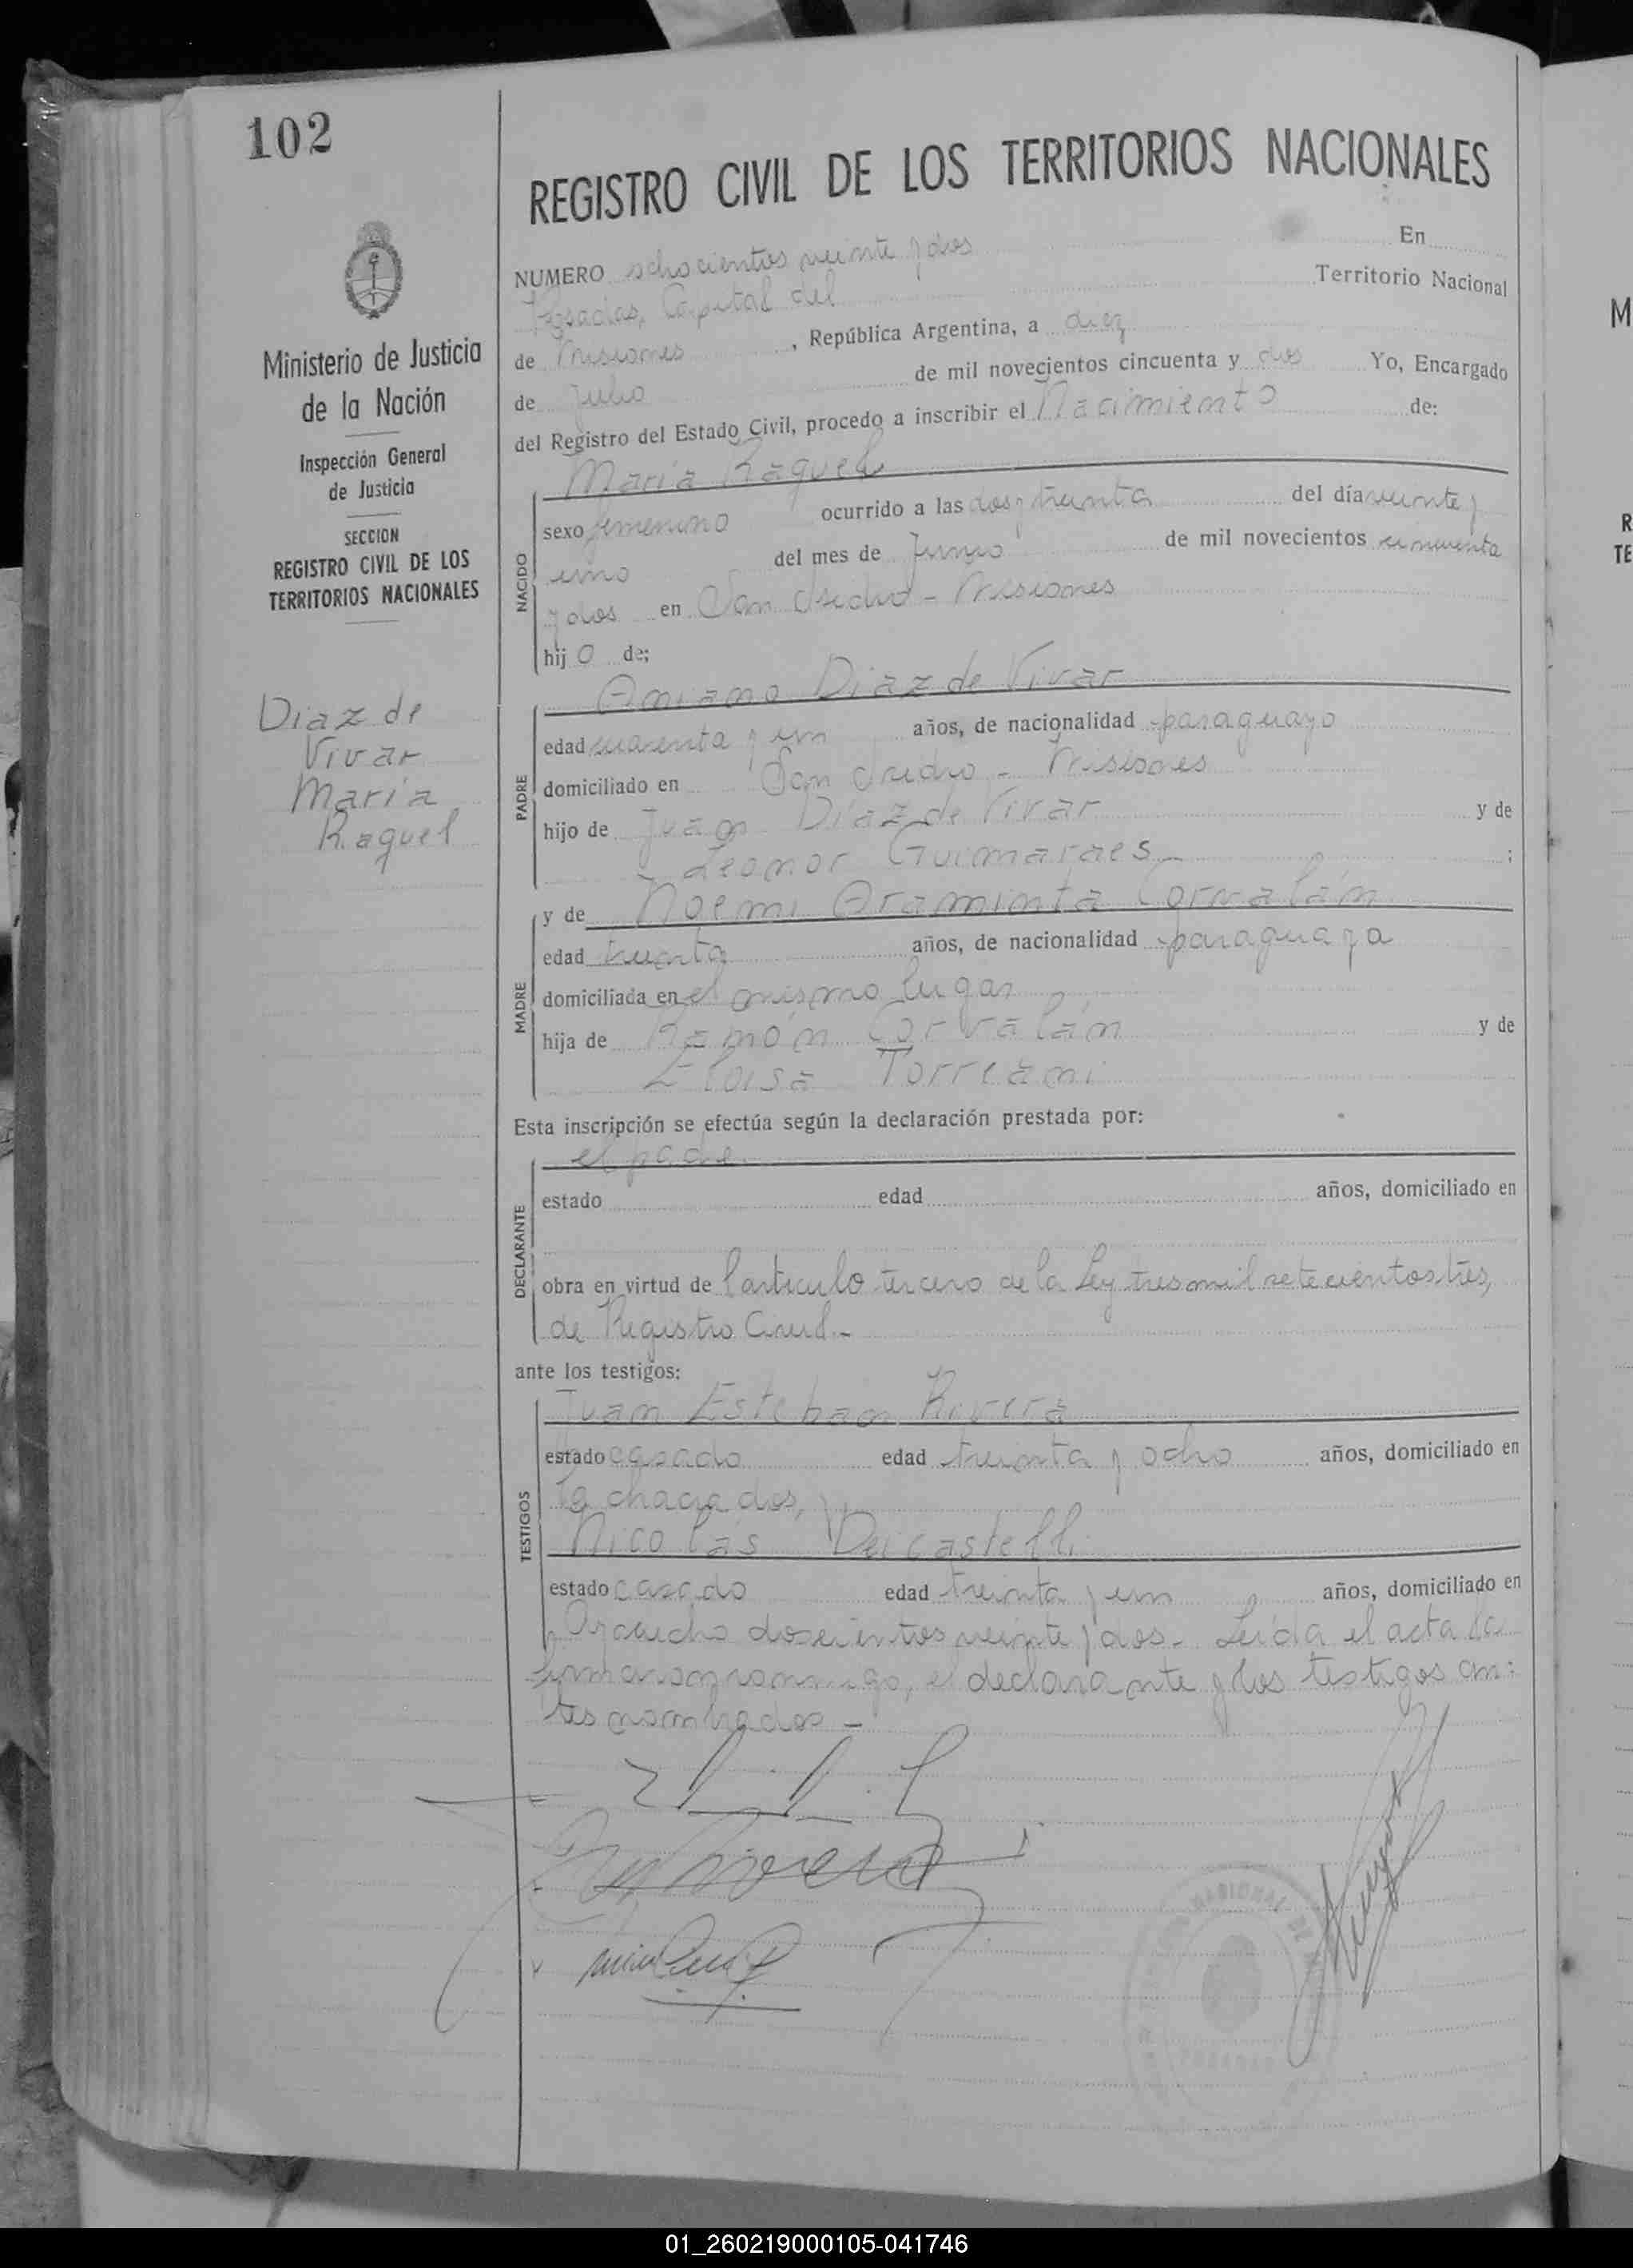 102
REGISTRO CIVIL DE LOS TERRITORIOS NACIONALES
Ministerio de Justicia
de la Nación
Inspección General
de Justicia
SECCION
REGISTRO CIVIL DE LOS
TERRITORIOS NACIONALES
Diaz de
Vivar
Maria
Raquel
NUMERO ochocientos veinte y dos En
Posadas, Capital del Territorio Nacional
de Misiones, República Argentina, a diez
de Julio de mil novecientos cincuenta y dos Yo, Encargado
del Registro del Estado Civil, procedo a inscribir el Nacimiento de:
Maria Raquel
NACIDO
sexo femenino ocurrido a las dos y treinta del día veinte y
uno del mes de Junio de mil novecientos cincuenta
y dos en San Isidro - Misiones
hijo de:
Diaz de Vivar
PADRE
edad cuarenta y un años, de nacionalidad paraguayo
domiciliado en San Isidro - Misiones
hijo de Juan Diaz de Vivar y de
Leonor Guimaraes ;
MADRE
y de Noemi Araminta Corvalán
edad treinta años, de nacionalidad paraguaya
domiciliada en el mismo lugar
hija de Ramón Corvalán y de
Eloisa Torreani
Esta inscripción se efectúa según la declaración prestada por:
el padre
DECLARANTE
estado edad años, domiciliado en
obra en virtud de l artículo tercero de la Ley tres mil setecientos tres,
de Registro Civil.-
ante los testigos:
TESTIGOS
Juan Esteban Rivera
estado casado edad treinta y ocho años, domiciliado en
la chacra dos, y
Nicolás Deicastelli
estado casado edad treinta y un años, domiciliado en
Ayacucho doscientos veinte y dos.- Leída el acta la
firmaron conmigo, el declarante y los testigos an=
tes nombrados -
01_260219000105-041746